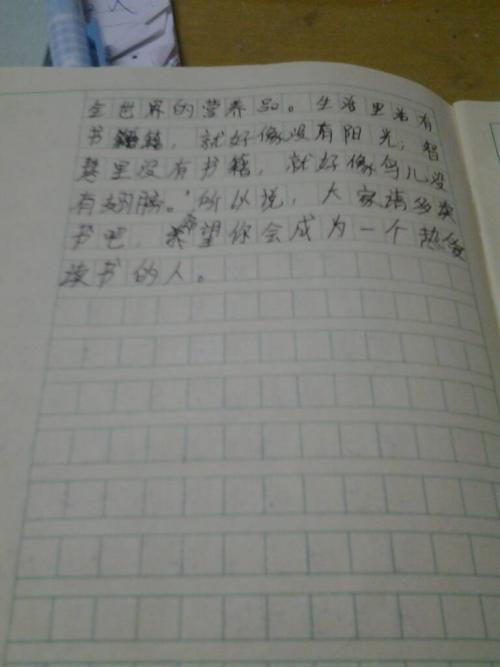 全世界的营养品。生活里没有
书籍，就好像没有阳光；智
慧里没有书籍，就好像鸟儿没
有翅膀。"所以说，大家请多读
书吧，希望你会成为一个热爱
读书的人。